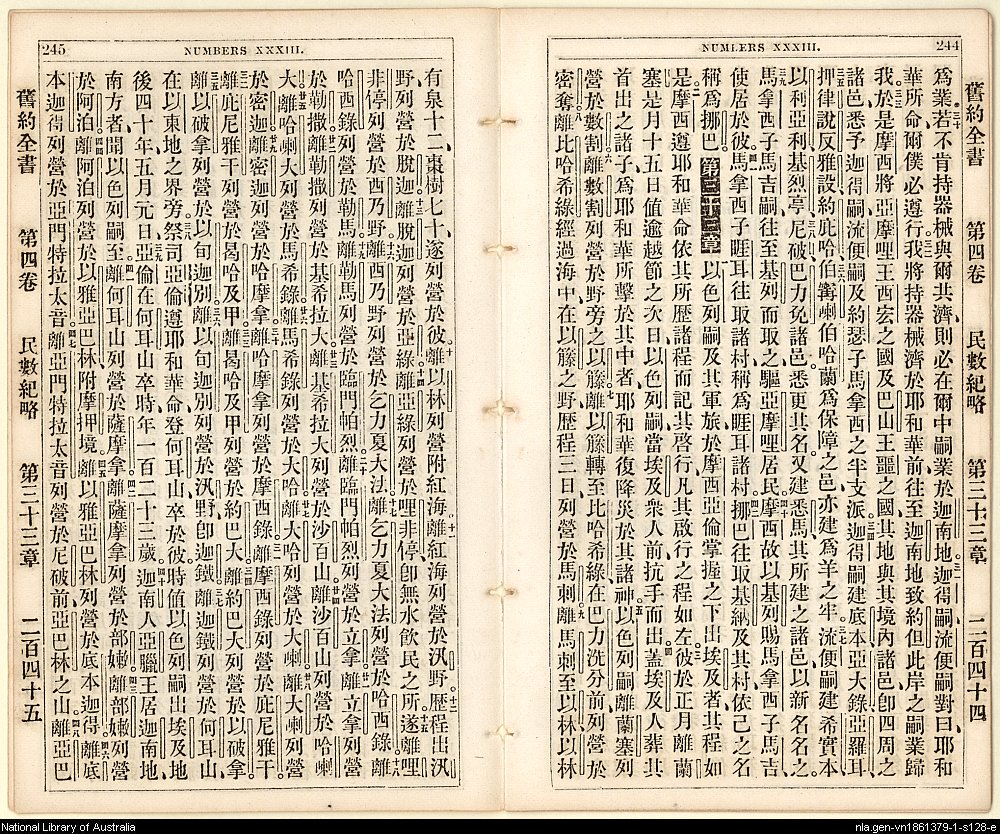 244
NUMBERS XXXIII.
舊約全書 第四卷 民數紀略 第三十三章 二百四十四
為業若不肯持器械與爾共濟則必在爾中嗣業於迦南地迦得嗣流便嗣對曰耶和
華所命爾僕必遵行我將持器械濟於耶和華前往至迦南地致約但此岸之嗣業歸
我於是摩西將亞摩哩王西宏之國及巴山王噩之國其地與其境內諸邑卽四周之
諸邑悉予迦得嗣流便嗣及約瑟子馬拿西之半支派迦得嗣建底本亞大錄亞羅耳
押律說反雅設約庇哈伯寗喇伯哈蘭為保障之邑亦建為羊之牢流便嗣建希實本
以利亞利基烈亭尼破巴力免諸邑悉更其名又建悉馬其所建之諸邑以新名名之
馬拿西子馬吉嗣往至基列而取之驅亞摩哩居民摩西故以基列賜馬拿西子馬吉
使居於彼馬拿西子睚耳往取諸村稱為睚耳諸村挪巴往取基納及其村依己之名
稱為挪巴第三十三章以色列嗣及其軍旅於摩西亞倫掌握之下出埃及者其程如
左摩西遵耶和華命依其所歷諸程而記其啓行凡其啟行之程如左彼於正月離蘭
塞是月十五日值逾越節之次日以色列嗣當埃及衆人前抗手而出蓋埃及人葬其
首出之諸子為耶和華所擊於其中者耶和華復降災於其諸神以色列嗣離蘭塞列
營於數割離數割列營於野旁之以籐離以籐轉至比哈希綠在巴力洗分前列營於
密奪離比哈希綠經過海中在以籐之野歷程三日列營於馬刺離馬刺至以林以林
245
NUMBERS XXXIII.
有泉十二棗樹七十遂列營於彼離以林列營附紅海離紅海列營於汎野歷程出汎
野列營於脫迦離脫迦列營於亞綠離亞綠列營於哩非停卽無水飲民之所遂離哩
非停列營於西乃野離西乃野列營於乞力夏大法離乞力夏大法列營於哈西錄離
哈西錄列營於勒馬離勒馬列營於臨門帕烈離臨門帕烈列營於立拿離立拿列營
於勒撒離勒撒列營於基希拉大離基希拉大列營於沙百山離沙百山列營於哈喇
大離哈喇大列營於馬希錄離馬希錄列營於大哈離大哈列營於大喇離大喇列營
於密迦離密迦列營於哈摩拿離哈摩拿列營於摩西錄離摩西錄列營於庇尼雅干
離庇尼雅干列營於曷哈及甲離曷哈及甲列營於約巴大離約巴大列營於以破拿
離以破拿列營於以旬迦別離以旬迦別列營於汎野卽迦鐵離迦鐵列營於何耳山
在以東地之界旁祭司亞倫遵耶和華命登何耳山卒於彼時值以色列嗣出埃及地
後四十年五月元日亞倫在何耳山卒時年一百二十三歲迦南人亞臘王居迦南地
南方者聞以色列嗣至離何耳山列營於薩摩拿離薩摩拿列營於部嫩離部嫩列營
於阿泊離阿泊列營於以雅亞巴林附摩押境離以雅亞巴林列營於底本迦得離底
本迦得列營於亞門特拉太音離亞門特拉太音列營於尼破前亞巴林之山離亞巴
舊約全書 第四卷 民數紀略 第三十三章 二百四十五
National Library of Australia
nla.gen-vn1861379-1-s128-e